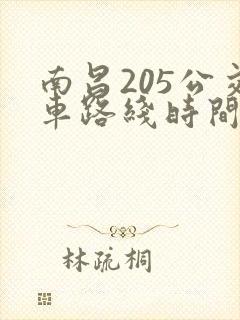 南昌205公交
車路綫時間
林疏桐